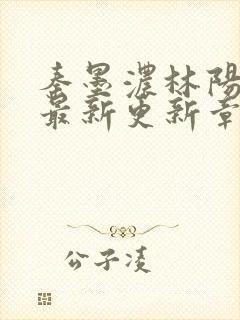 秦墨濃林陽
最新更新章
公子凌